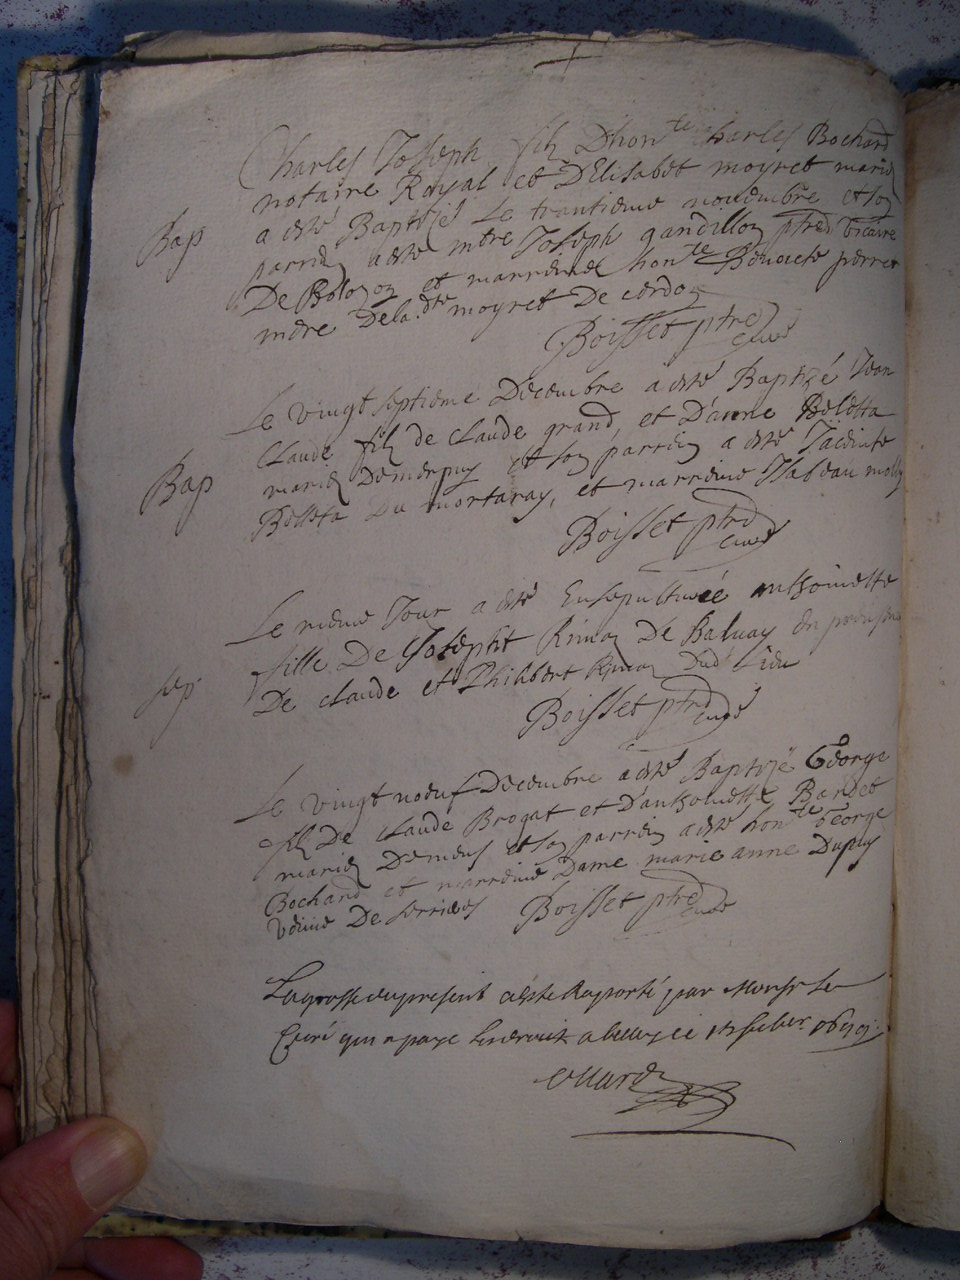 Charles Joseph filz D'hon.te Charles Bochard
notaire Royal et D'Elisabet moyret mariez
Bap
a esté Baptizé Le trantieme novembre et son
parrin a esté mre Joseph gandillon ptre vicaire
De Bolozon et marreine hon.te Benoiete perret
mere De la dte moyret De cerdon
Boisset ptre
curé
Le vingt septieme Decembre a esté Baptizé Jean
Claude filz de Claude grand, et D'anne Beletta
Bap
mariez et son parrin a esté Jacinte
Belleta du mortaray, et marreine Isabeau
Boisset ptre
curé
Le meme Jour a esté Ensepulturée anthoinette
fille De Joseph De Balvay En presence
sep
De claude et Philibert dud. Lieu
Boisset ptre
curé
Le vingt noeuf Decembre a esté Baptizé George
filz De claude Brogat et D'anthoinette Bardet
mariez et son parrin a esté hon.te George
Bochard et marreine Dame marie anne Dupuy
veuve De serrieres
Boisset ptre
curé
La grosse du present a esté Raporté par Monsr Le
Curé qui a payé Les droitz a belley ce